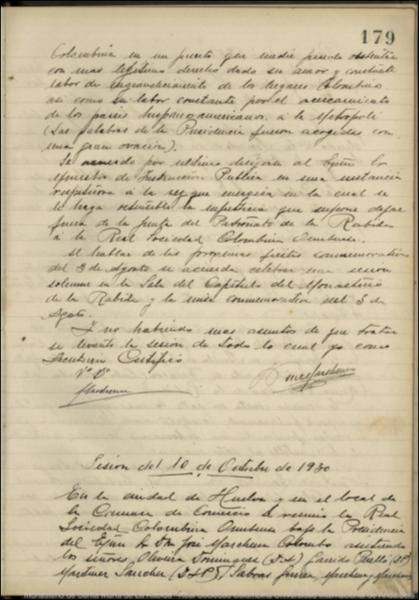 179
Colombina en un puesto que nadie puede ostentar
con mas legitimo derecho dado su amor y constante
labor de engrandecimiento de los lugares Colombinos
asi como su labor constante por el acercamiento
de los paises hispano americanos a la Metropoli
(Las palabras de la Presidencia fueron acogidas con
una gran ovación).
Se acuerda por ultimo dirigirse al Exmo Sr
Ministro de Instrucción Publica en una instancia
respetuosa a la vez que energica en la cual se
le haga la injusticia que supone dejar
fuera de la junta del Patronato de la Rabida
á la Real Sociedad Colombina Onubense.
Al hablar de las proximas fiestas conmemorativas
del 3 de Agosto se acuerda celebrar una sesion
solemne en la Sala del Capitulo del Monasterio
de la Rabida y la conmemorativa del 3 de
Agosto.
Y no habiendo mas asuntos de que tratar
se levantó la sesion de todo lo cual yo como
Secretario Certifico
Vº Bº
Marchena
Marchena
Sesion del 10 de Octubre de 1930
En la ciudad de Huelva y en el local de
la Camara de Comercio se reunio la Real
Sociedad Colombina Onubense bajo la Presidencia
del Exmo Sr Don José Marchena Colombo asistiendo
los señores Oliveira Dominguez Garrido Perelló
Martinez Sanchez Marchena